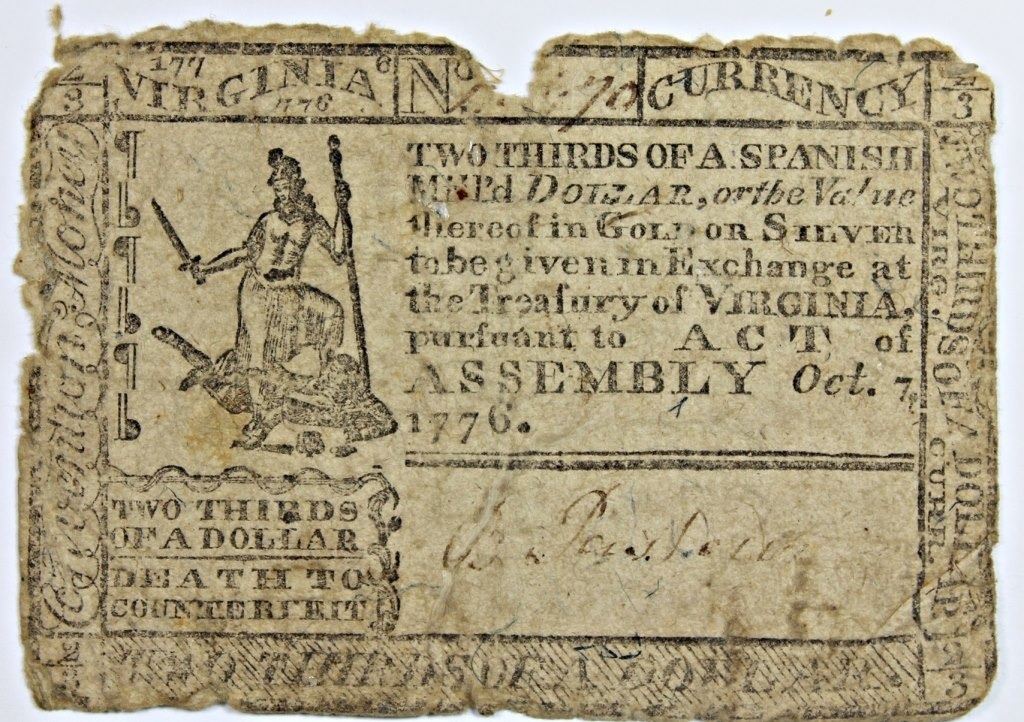 1776
VIRGINIA
1776
No.
CURRENCY
2/3
2/3
TWO THIRDS OF A SPANISH
Mill'd DOLLAR, or the Value
thereof in GOLD OR SILVER
to be given in Exchange at
the Treaſury of VIRGINIA,
purſuant to ACT of
ASSEMBLY Oct. 7,
1776.
TWO THIRDS
OF A DOLLAR
DEATH TO
COUNTERFEIT
TWO THIRDS OF A DOLLAR
TWO THIRDS OF A DOLLAR
VIRG. CURR.
2/3